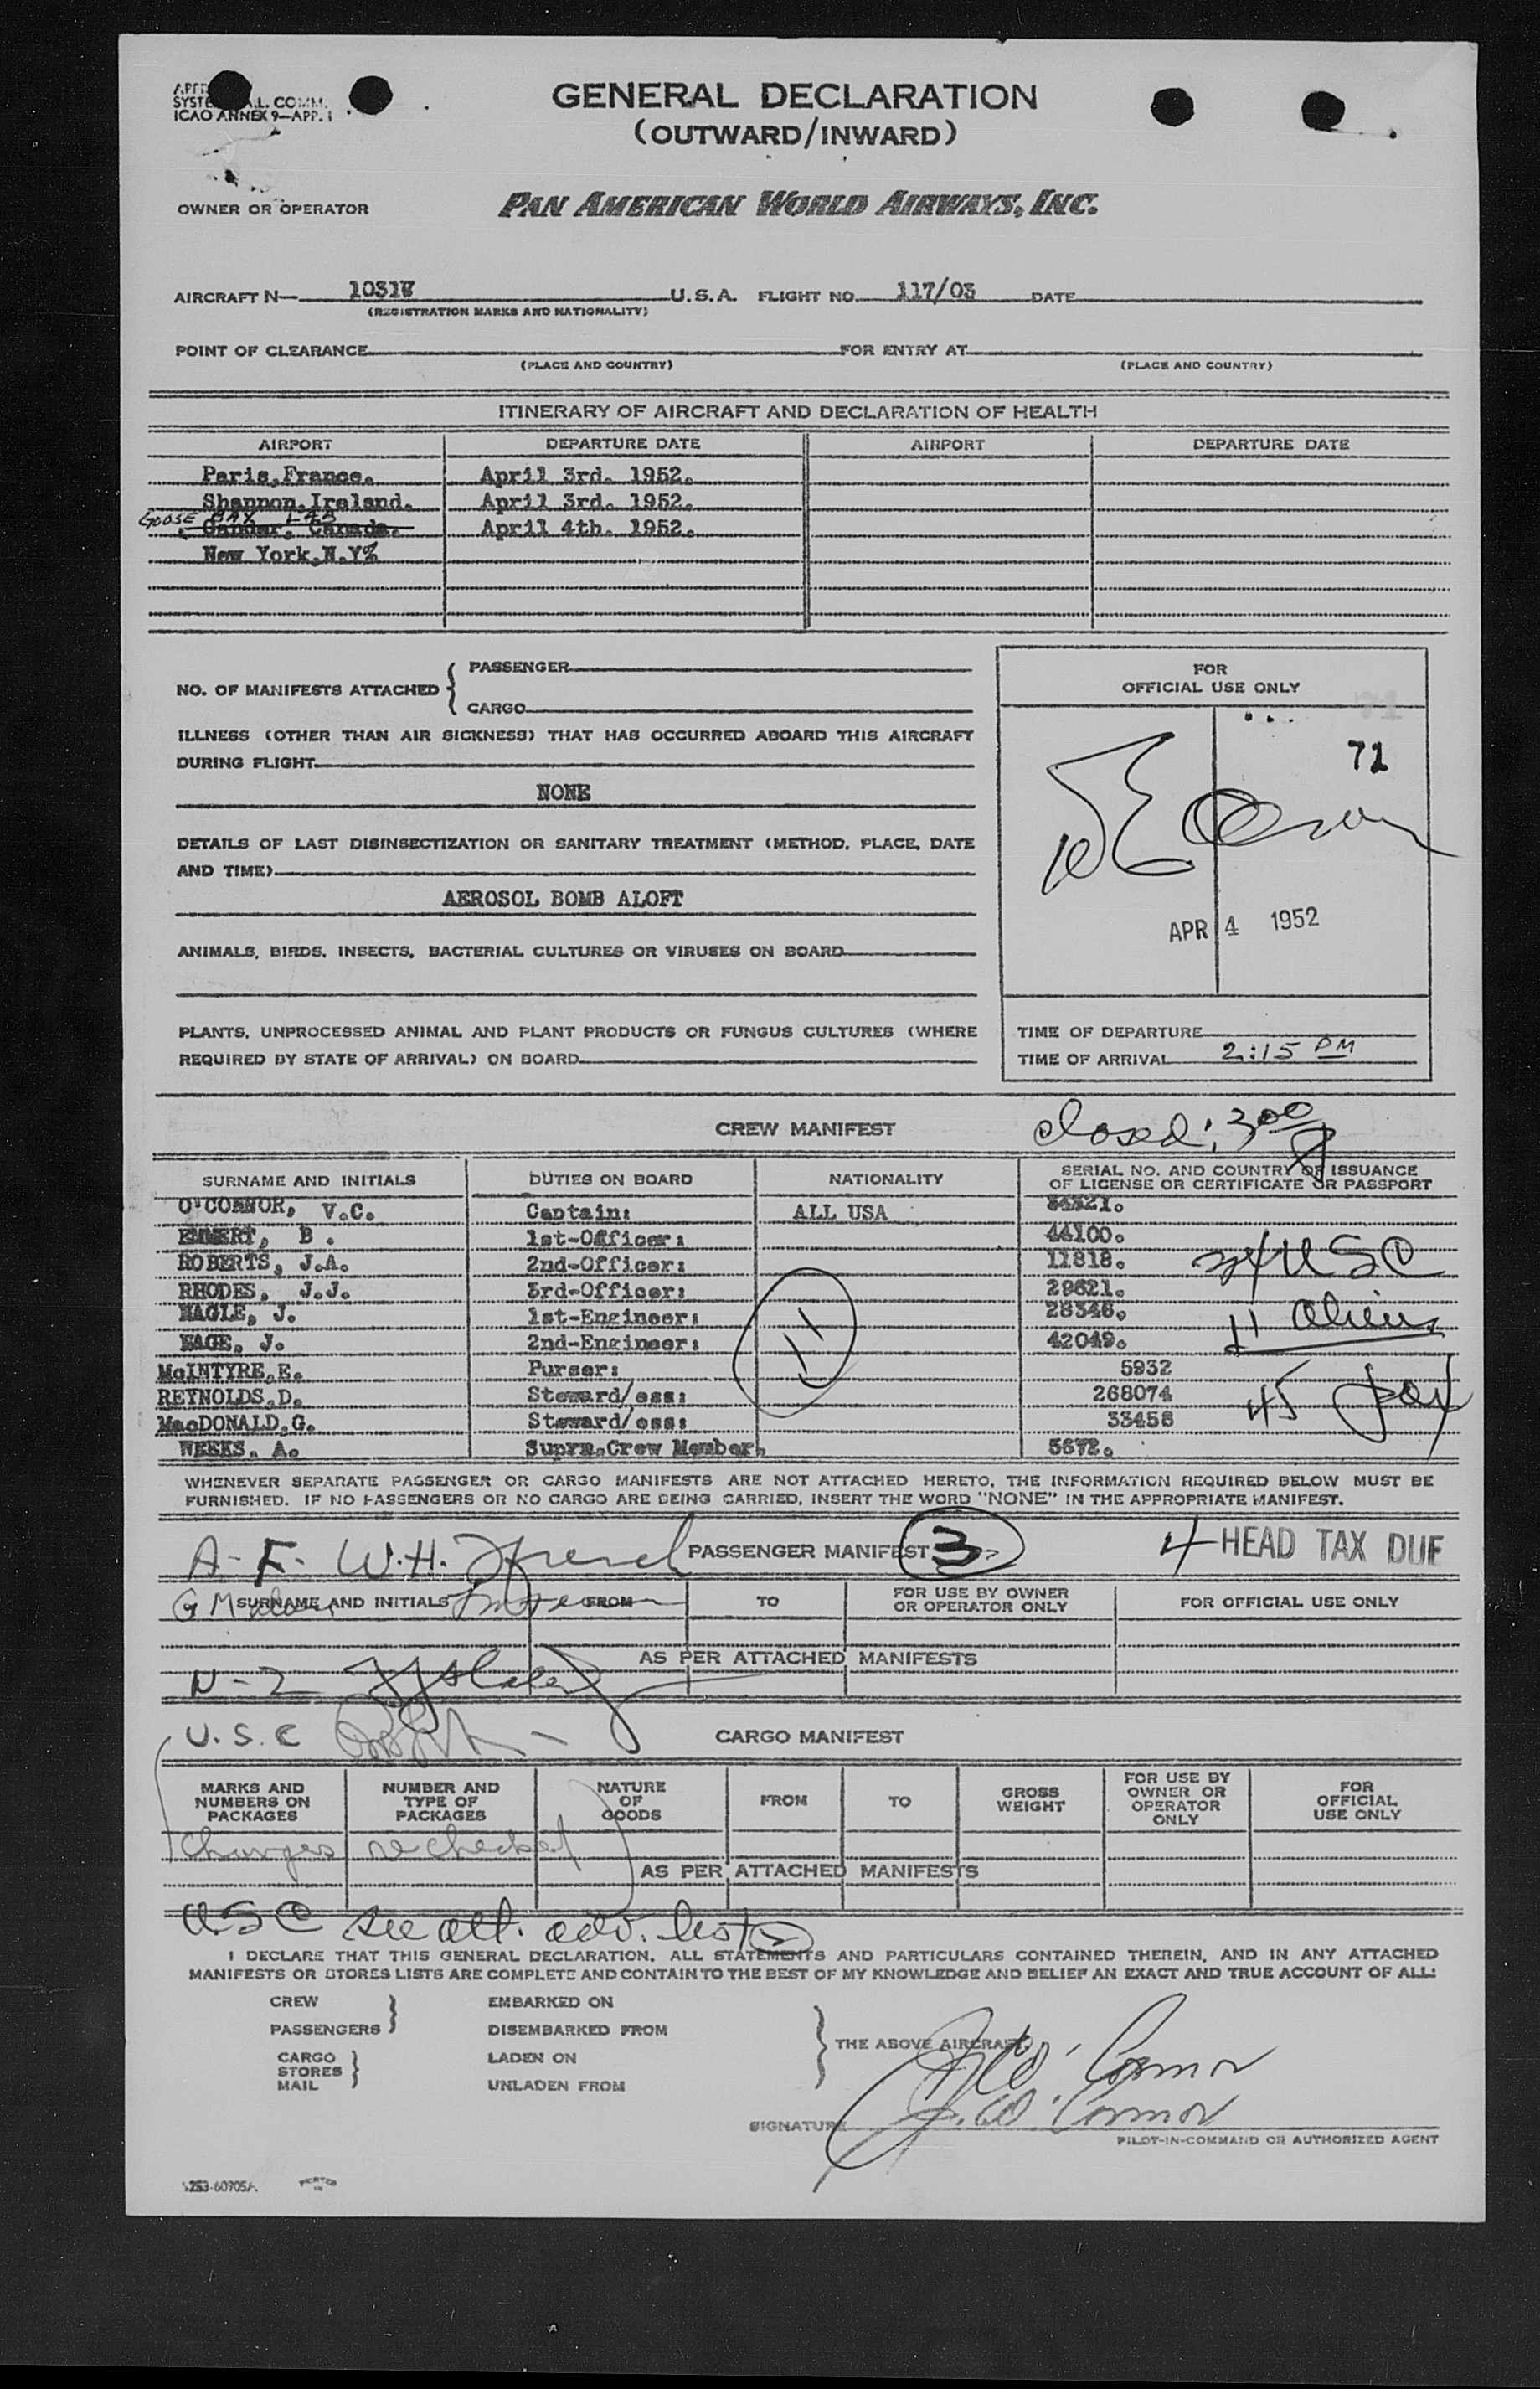 GENERAL DECLARATION
(OUTWARD/INWARD)
L. COMM.
ICAO ANNEX 9—APP. 1
OWNER OR OPERATOR PAN AMERICAN WORLD AIRWAYS, INC.
AIRCRAFT N— U.S.A. FLIGHT NO. 117/03 DATE
(REGISTRATION MARKS AND NATIONALITY)
POINT OF CLEARANCE FOR ENTRY AT
(PLACE AND COUNTRY) (PLACE AND COUNTRY)
ITINERARY OF AIRCRAFT AND DECLARATION OF HEALTH
AIRPORT DEPARTURE DATE AIRPORT DEPARTURE DATE
Paris, France. April 3rd. 1952.
Shannon, Ireland. April 3rd. 1952.
GOOSE BAY LAB
Gander, Canada. April 4th. 1952.
New York, N.Y%
NO. OF MANIFESTS ATTACHED { PASSENGER
CARGO
FOR
OFFICIAL USE ONLY
71
71
APR 4 1952
ILLNESS (OTHER THAN AIR SICKNESS) THAT HAS OCCURRED ABOARD THIS AIRCRAFT
DURING FLIGHT
NONE
DETAILS OF LAST DISINSECTIZATION OR SANITARY TREATMENT (METHOD, PLACE, DATE
AND TIME)
AEROSOL BOMB ALOFT
ANIMALS, BIRDS, INSECTS, BACTERIAL CULTURES OR VIRUSES ON BOARD
PLANTS, UNPROCESSED ANIMAL AND PLANT PRODUCTS OR FUNGUS CULTURES (WHERE
REQUIRED BY STATE OF ARRIVAL) ON BOARD
TIME OF DEPARTURE
TIME OF ARRIVAL 2:15 PM
CREW MANIFEST closed: 300
SURNAME AND INITIALS DUTIES ON BOARD NATIONALITY SERIAL NO. AND COUNTRY OF ISSUANCE
OF LICENSE OR CERTIFICATE OR PASSPORT
O'CONNOR, V.C. Captain: ALL USA
EMMERT, B. 1st-Officer: 44100.
ROBERTS, J.A. 2nd-Officer: 11818. USC
RHODES, J.J. 3rd-Officer: 29621.
NAGLE, J. 1st-Engineer: 28346. 11 Aliens
J. 2nd-Engineer: 42049.
McINTYRE, E. Purser: 5932
REYNOLDS, D. Steward/ess: 268074
MacDONALD, G. Steward/ess: 33458 45 pax
WEEKS, A. Supra. Crew Member. 5672.
WHENEVER SEPARATE PASSENGER OR CARGO MANIFESTS ARE NOT ATTACHED HERETO, THE INFORMATION REQUIRED BELOW MUST BE
FURNISHED. IF NO PASSENGERS OR NO CARGO ARE BEING CARRIED, INSERT THE WORD "NONE" IN THE APPROPRIATE MANIFEST.
A-F- W.H. PASSENGER MANIFEST 3 4 HEAD TAX DUE
G M
SURNAME AND INITIALS FROM TO FOR USE BY OWNER
OR OPERATOR ONLY FOR OFFICIAL USE ONLY
AS PER ATTACHED MANIFESTS
N-Z
U.S.C CARGO MANIFEST
MARKS AND
NUMBERS ON
PACKAGES
NUMBER AND
TYPE OF
PACKAGES
NATURE
OF
GOODS
FROM
TO
GROSS
WEIGHT
FOR USE BY
OWNER OR
OPERATOR
ONLY
FOR
OFFICIAL
USE ONLY
Changes rechecked
AS PER ATTACHED MANIFESTS
USC see att. adv. list 2
I DECLARE THAT THIS GENERAL DECLARATION, ALL STATEMENTS AND PARTICULARS CONTAINED THEREIN, AND IN ANY ATTACHED
MANIFESTS OR STORES LISTS ARE COMPLETE AND CONTAIN TO THE BEST OF MY KNOWLEDGE AND BELIEF AN EXACT AND TRUE ACCOUNT OF ALL:
CREW EMBARKED ON
PASSENGERS } DISEMBARKED FROM
THE ABOVE AIRCRAFT
CARGO LADEN ON
STORES }
MAIL UNLADEN FROM
O'Connor
O'Connor
SIGNATURE
PILOT-IN-COMMAND OR AUTHORIZED AGENT